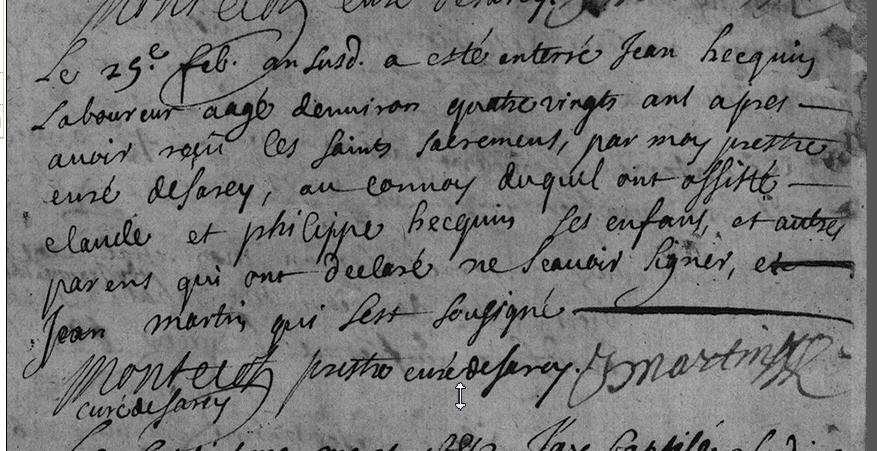 curé desarcy.
Le 25e feb. an susd. a esté enterré Jean hecquin
Laboureur aagé denviron quatre vingts ans apres
avoir reçu les saints sacremens, par moy prestre
curé desarcy, au convoy duquel ont assisté
claude et philippe hecquin ses enfans, et autres
parens qui ont declaré ne scavoir signer, et
Jean martin qui sest sousigné
Montecot prestre curé desarcy. J martin
curé desarcy